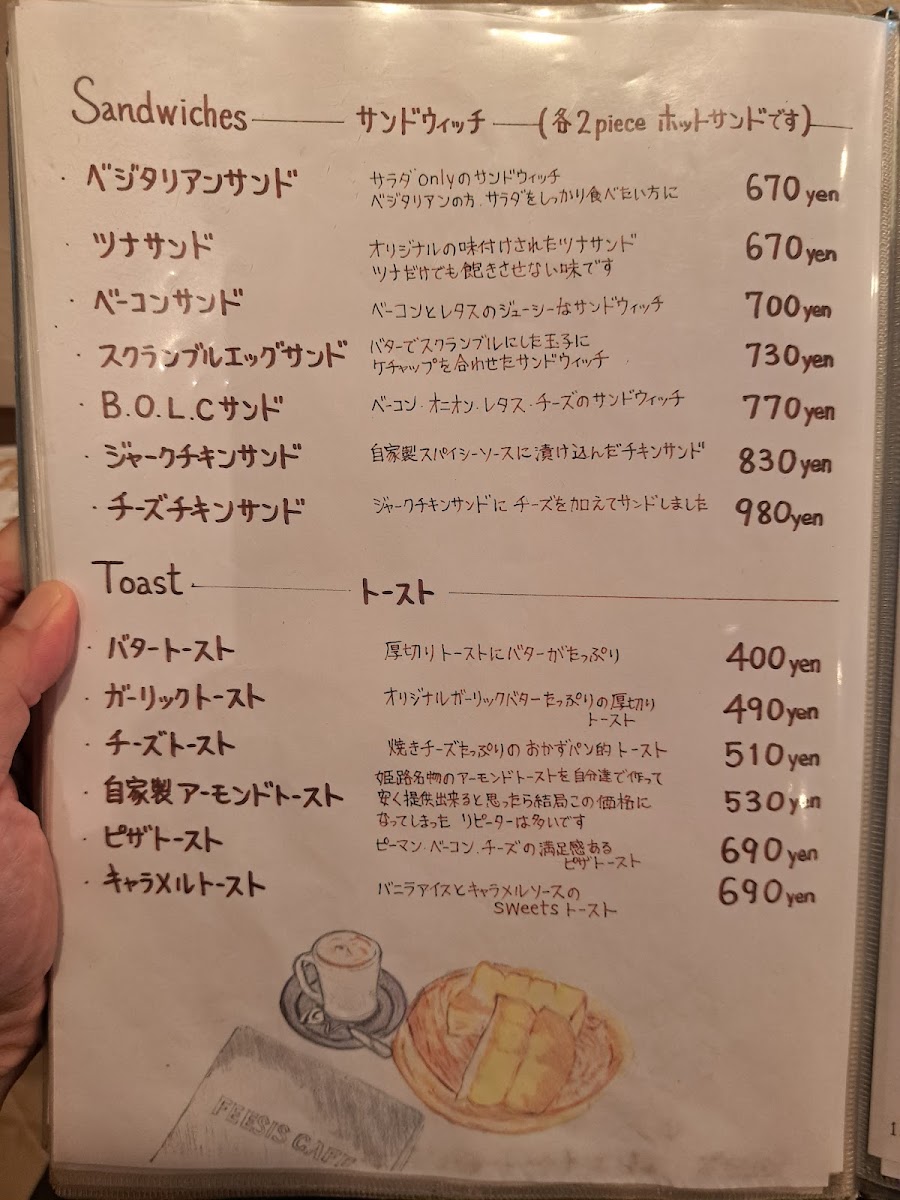 Sandwiches サンドウィッチ (各2piece ホットサンドです)
・ベジタリアンサンド サラダonlyのサンドウィッチ 670 yen
ベジタリアンの方、サラダをしっかり食べたい方に
・ツナサンド オリジナルの味付けされたツナサンド 670 yen
ツナだけでも飽きさせない味です
・ベーコンサンド ベーコンとレタスのジューシーなサンドウィッチ 700 yen
・スクランブルエッグサンド バターでスクランブルにした玉子に 730 yen
ケチャップを合わせたサンドウィッチ
・B.O.L.Cサンド ベーコン・オニオン・レタス・チーズのサンドウィッチ 770 yen
・ジャークチキンサンド 自家製スパイシーソースに漬け込んだチキンサンド 830 yen
・チーズチキンサンド ジャークチキンサンドに チーズを加えてサンドしました 980 yen
Toast トースト
・バタートースト 厚切りトーストにバターがたっぷり 400 yen
・ガーリックトースト オリジナルガーリックバターたっぷりの厚切り 490 yen
トースト
・チーズトースト 焼きチーズたっぷりの おかずパン的 トースト 510 yen
・自家製アーモンドトースト 姫路名物のアーモンドトーストを自分達で作って 530 yen
安く提供出来ると思ったら結局この価格に
なってしまった リピーターは多いです
・ピザトースト ピーマン・ベーコン、チーズの満足感ある 690 yen
ピザトースト
・キャラメルトースト バニラアイスとキャラメルソースの 690 yen
sweets トースト
FEESIS CAFE